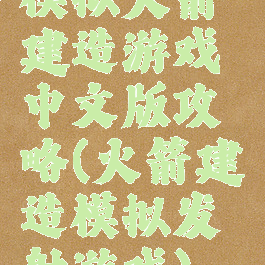 模拟火箭
建造游戏
中文版攻
略(火箭建
造模拟发
射游戏)